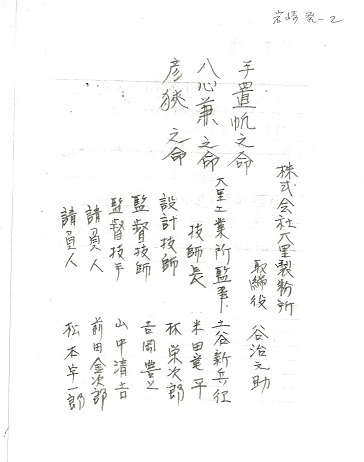 岩崎 発-2
株式会社大里製粉所
取締役 谷治之助
手置帆之命
八心兼之命
彦狭之命
大里工業所監事 土谷新兵衛
技師長 米田竟平
設計技師 林栄次郎
監督技師 吉岡豊
監督技手 山中清吉
請負人 前田金次郎
請負人 松本宇一郎